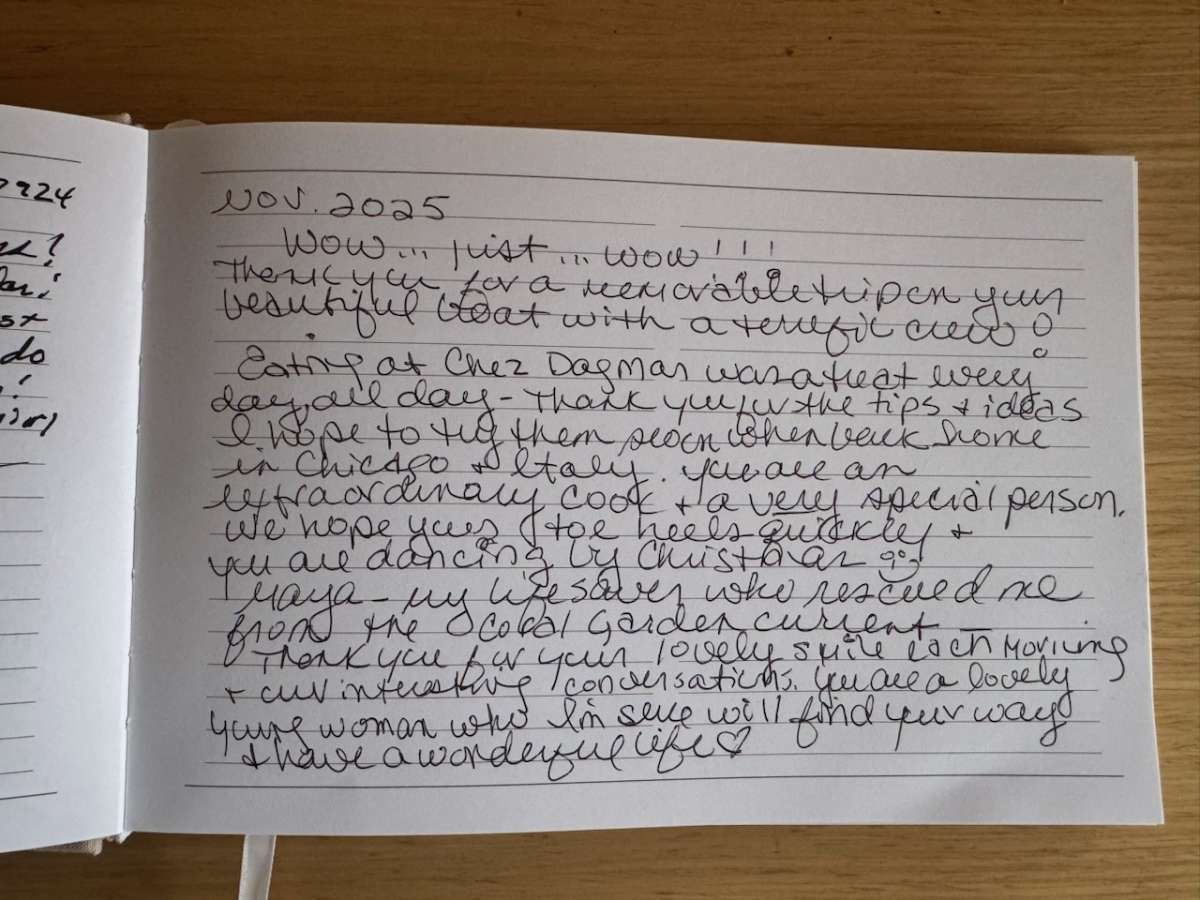 2924
do
Nov. 2025
Wow... just... wow!!!
Thank you for a memorable trip on your
beautiful boat with a terrefic crew!
Eating at Chez Dagmar was a treat every
day, all day - Thank you for the tips + ideas
I hope to try them soon when back home
in Chicago + Italy. You are an
extraordinary cook + a very special person.
We hope your toe heels quickly +
you are dancing by Christmas
Maya - my lifesaver who rescued me
from the Coral Garden current -
Thank you for your lovely smile each morning
+ our interesting conversations. You are a lovely
young woman who I'm sure will find your way
+ have a wonderful life ♡